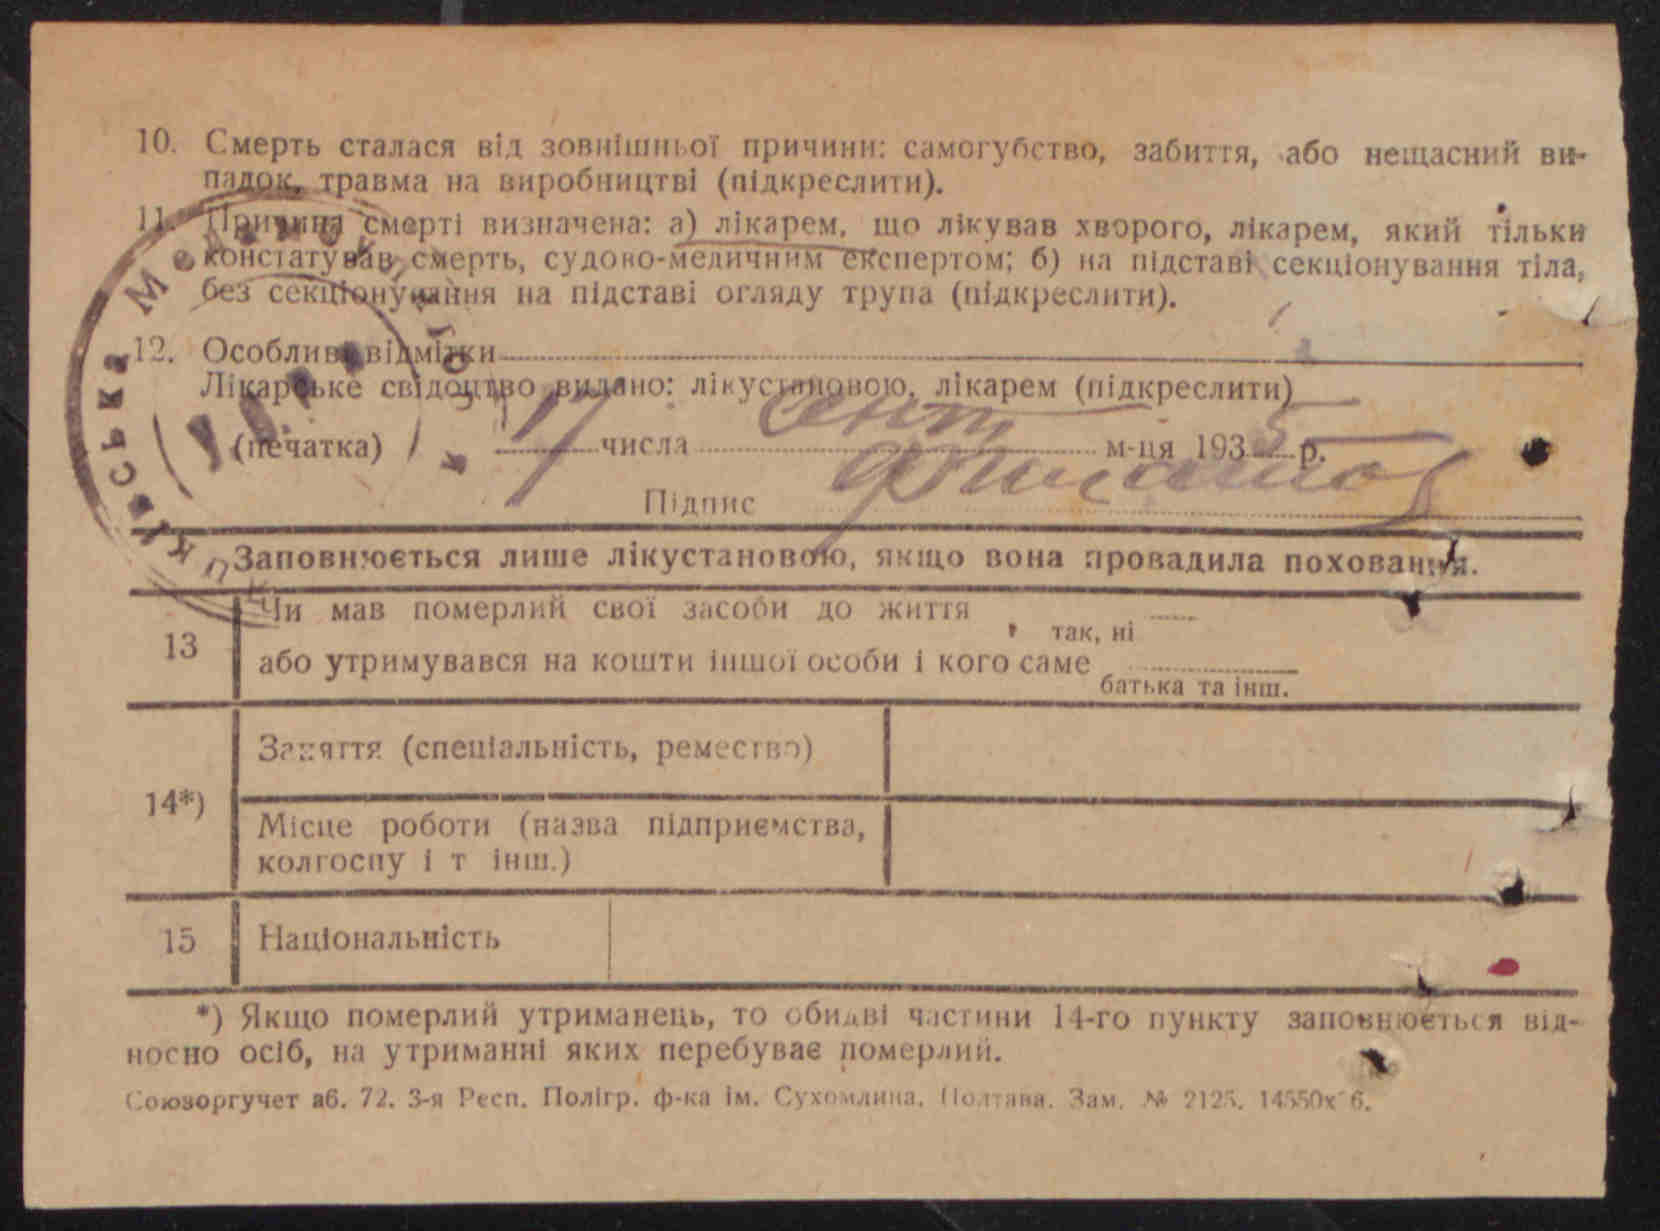 10. Смерть сталася від зовнішньої причини: самогубство, забиття, або нещасний ви-
падок, травма на виробництві (підкреслити).
11. Причина смерті визначена: а) лікарем, що лікував хворого, лікарем, який тільки
констатував смерть, судово-медичним експертом; б) на підставі секціонування тіла,
без секціонування на підставі огляду трупа (підкреслити).
12. Особливі відмітки
Лікарське свідоцтво видано: лікустановою, лікарем (підкреслити)
(печатка) 17 числа Сент м-ця 1935 р.
Підпис
Заповнюється лише лікустановою, якщо вона провадила поховання.
13 Чи мав померлий свої засоби до життя
так, ні
або утримувався на кошти іншої особи і кого саме
батька та інш.
14*) Заняття (спеціальність, ремество)
Місце роботи (назва підприємства,
колгоспу і т інш.)
15 Національність
*) Якщо померлий утриманець, то обидві частини 14-го пункту заповнюється від-
носно осіб, на утриманні яких перебуває померлий.
Союзоргучет аб. 72. 3-я Респ. Полігр. ф-ка ім. Сухомлина. Полтава. Зам. № 2125.